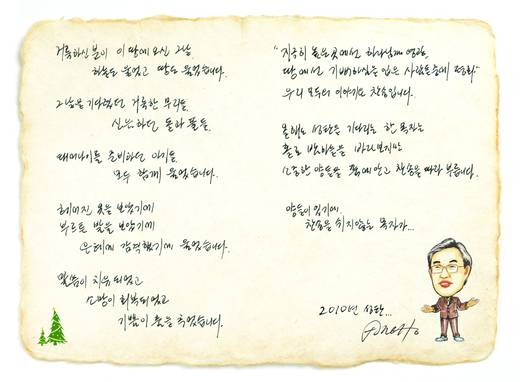 거룩하신 분이 이 땅에 오신 그날
하늘도 울었고 땅도 울었습니다.
그날을 기다렸던 거룩한 무리들.
태어나
모두 함께 울었습니다.
헤어진 옷을 보았기에
부르튼 발을 보았기에
은혜에 감격했기에 울었습니다.
말씀이 치유되었고
소망이 회복되었고
기쁨이 춤을 추었습니다.
"지극히 높은 곳에선 하나님께 영광,
땅에선 기뻐하심을 입은 사람들 중에 평화"
우리 모두의 이야기요 찬송입니다.
올해도 성탄을 기다리는 한 목자는
홀로 밤하늘을 바라보지만
소중한 양들을 품에 안고 찬송을 따라 부릅니다.
양들이 있기에,
찬송을 쉬지 않는 목자가...
2010년 성탄...